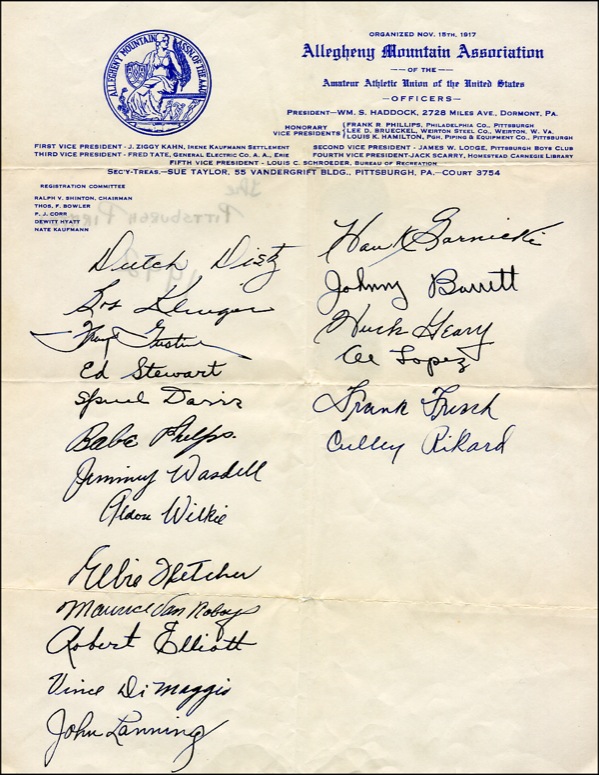 ALLEGHENY MOUNTAIN ASSN. OF THE A.A.U.
ORGANIZED NOV. 15TH, 1917
Allegheny Mountain Association
—OF THE—
Amateur Athletic Union of the United States
—OFFICERS—
PRESIDENT—WM. S. HADDOCK, 2728 MILES AVE., DORMONT, PA.
HONORARY VICE PRESIDENTS
FRANK R. PHILLIPS, PHILADELPHIA CO., PITTSBURGH
LEE D. BRUECKEL, WEIRTON STEEL CO., WEIRTON, W. VA.
LOUIS K. HAMILTON, PGH. PIPING & EQUIPMENT CO., PITTSBURGH
FIRST VICE PRESIDENT - J. ZIGGY KAHN, IRENE KAUFMANN SETTLEMENT
SECOND VICE PRESIDENT - JAMES W. LODGE, PITTSBURGH BOYS CLUB
THIRD VICE PRESIDENT - FRED TATE, GENERAL ELECTRIC CO. A. A., ERIE
FOURTH VICE PRESIDENT - JACK SCARRY, HOMESTEAD CARNEGIE LIBRARY
FIFTH VICE PRESIDENT - LOUIS C. SCHROEDER, BUREAU OF RECREATION
SECY-TREAS.—SUE TAYLOR, 55 VANDERGRIFT BLDG., PITTSBURGH, PA.—COURT 3754
REGISTRATION COMMITTEE
RALPH V. SHINTON, CHAIRMAN
THOS. F. BOWLER
P. J. CORR
DEWITT HYATT
NATE KAUFMANN
The
Pittsburgh Pir
Dutch Dietz
Klinger
Gustine
Ed Stewart
Spud Davis
Babe Phelps.
Jimmy Wasdell
Aldon Wilkie
Elbie Fletcher
Maurice Van Robays
Robert Elliott
Vince DiMaggio
John Lanning
Hank Gornicki
Johnny Barrett
Huck Geary
Al Lopez
Frank Frisch
Culley Rikard